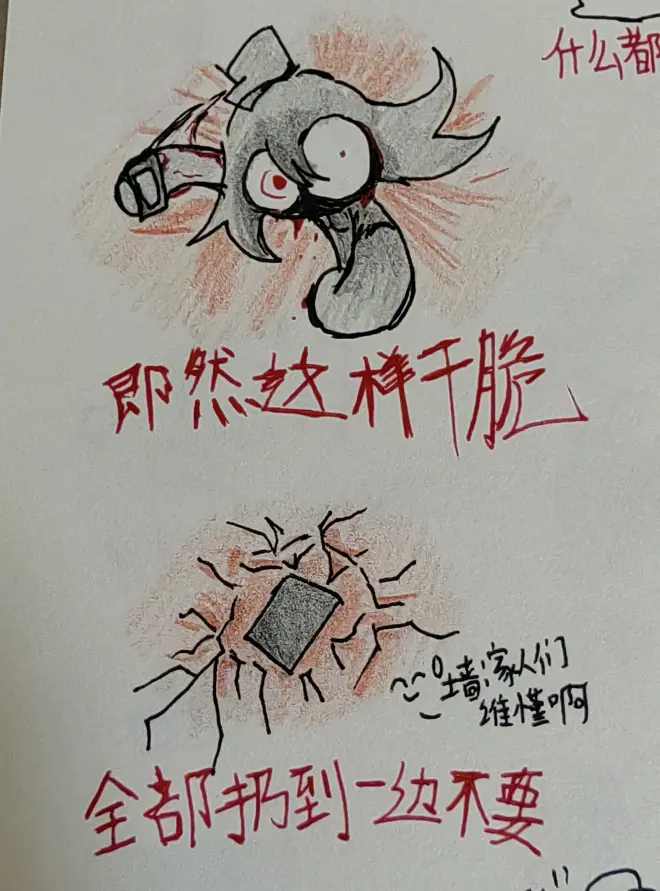 什么都
即然这样干脆
墙:家人们
谁懂啊
全部扔到一边不要